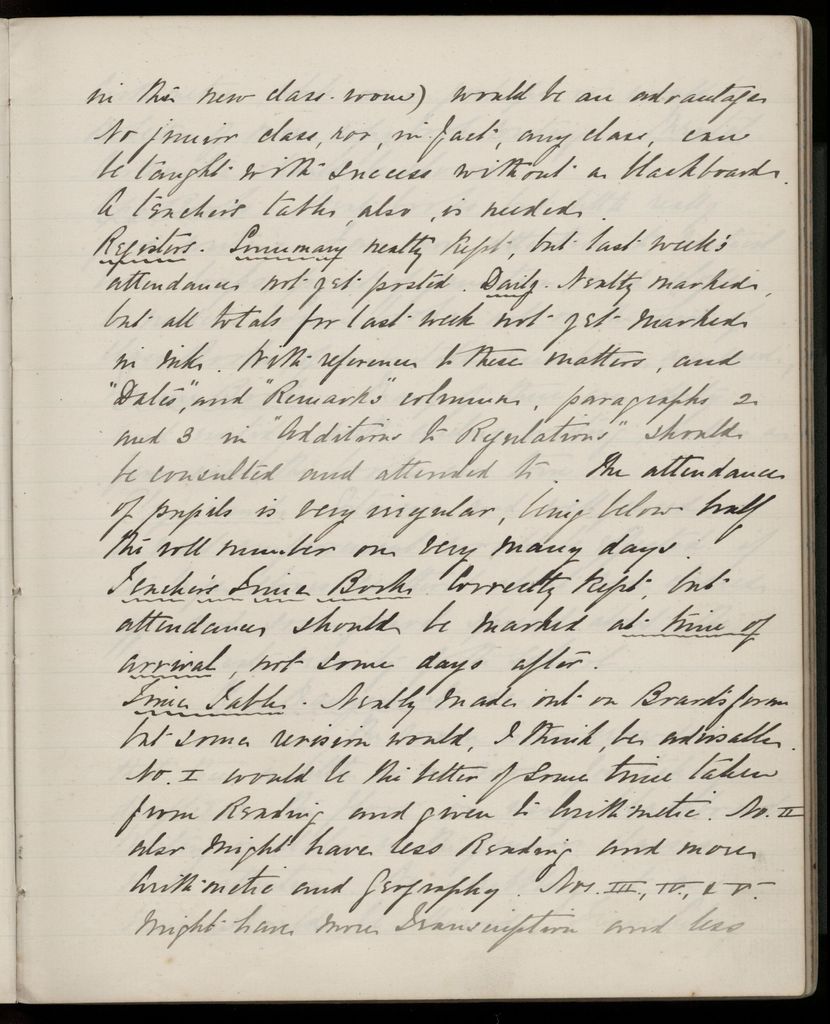 in this new class-room) would be an advantage
No junior class, nor, in fact, any class, can
be taught with success without a blackboard.
A teacher's table, also, is needed.
Registers. Summary neatly kept, but last week's
attendances not yet posted. Daily. Neatly marked,
but all totals for last week not yet marked
in ink. With reference to these matters, and
"Dates", and "Remarks" columns, paragraphs 2
and 3 in "Additions to Regulations" should
be consulted and attended to. The attendance
of pupils is very irregular, being below half
the roll number on very many days.
Teacher's Time Book. Correctly kept, but
attendances should be marked at time of
arrival, not some days after.
Time Table. Neatly made out on Board's form
but some revision would, I think, be advisable.
No. I would be the better of some time taken
from Reading and given to Arithmetic. No. II
also might have less Reading and more
Arithmetic and Geography. Nos. III, IV, & V.
might have more Transcription and less